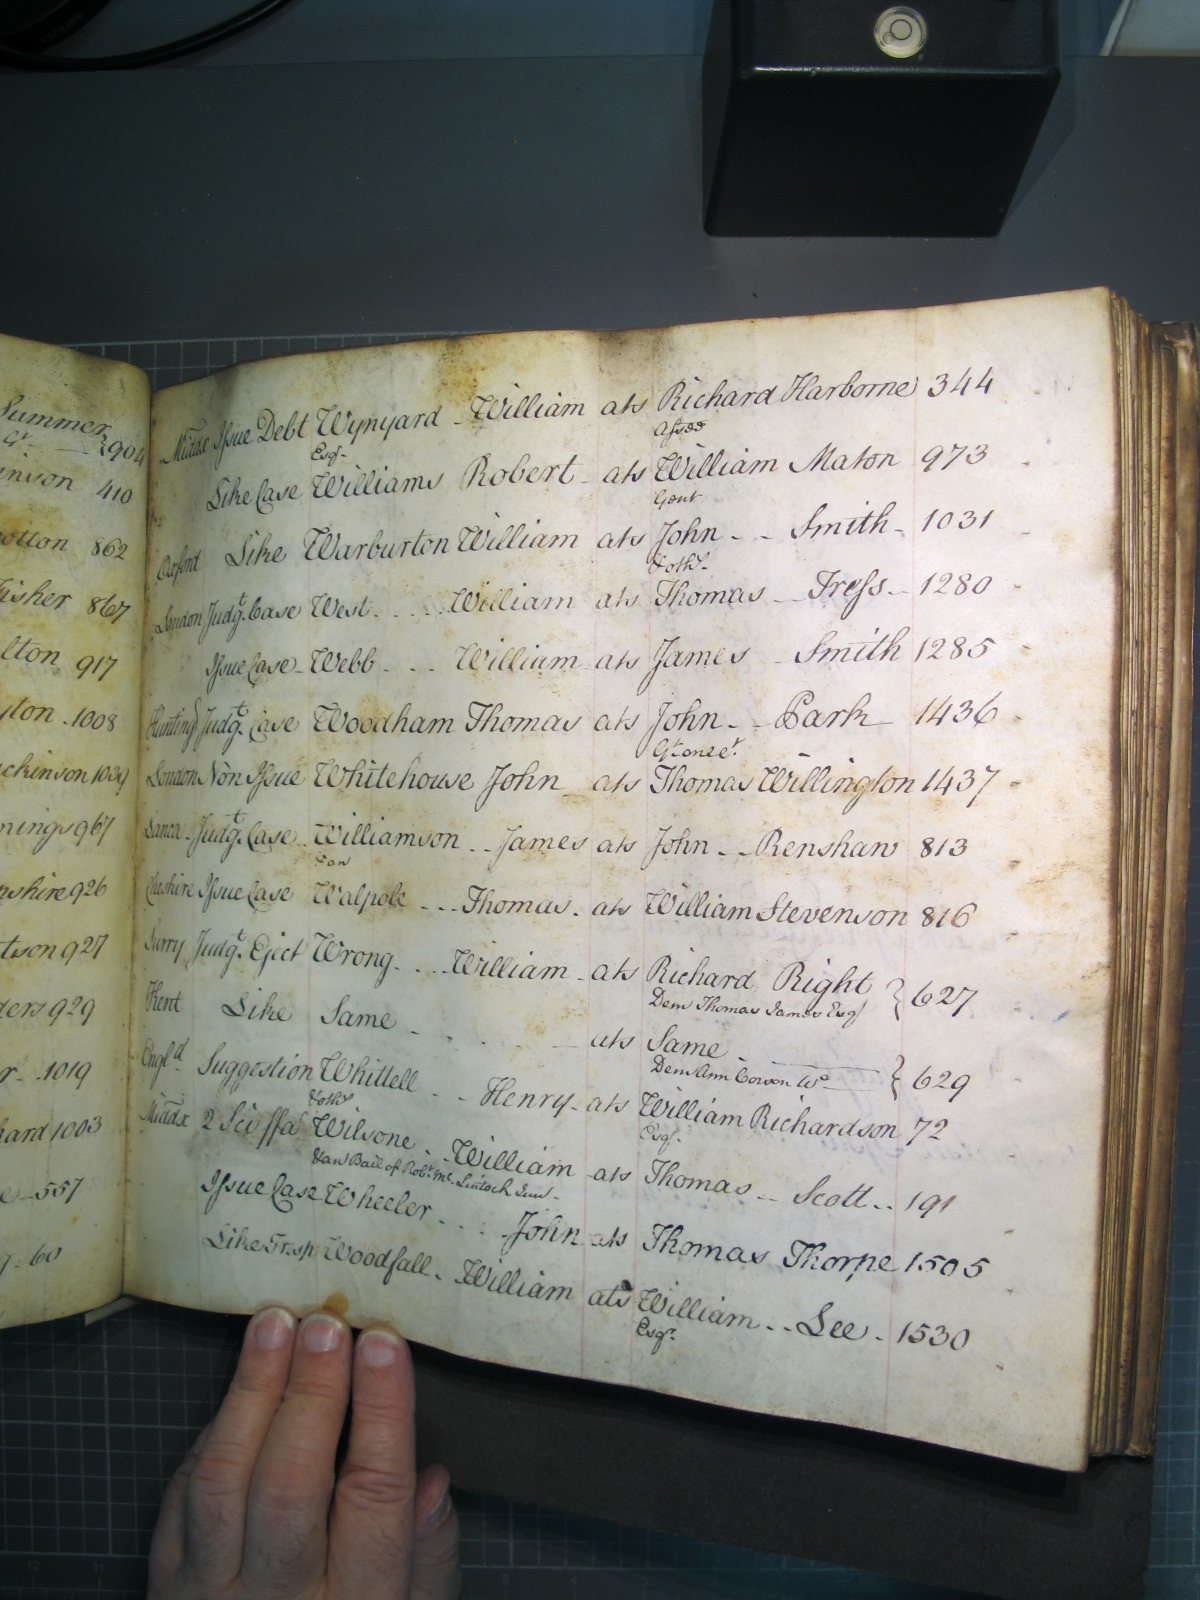 Summer
Gt. } 904
inson 410
otton 862
fisher 867
lton 917
ton . 1008
ckinson 1039
nings 967
nshire 926
tson 927
ders 929
r - 1019
hard 1003
e - 557
y - 60
Middx Issue Debt Wynyard - William ats Richard Harborne 344
Esqr. Assee
Like Case Williams Robert - ats William Maton 973
Gent
Oxford Like Warburton William ats John - - Smith - 1031
& othrs
London Judgt. Case West . . . . William ats Thomas - Tress - 1280
Issue Case - Webb . . . William - ats James - Smith 1285
Hunting Judgt. Case Woodham Thomas ats John - - Park - 1436
Gt one et.
London Non Issue Whitehouse John - ats Thomas Willington 1437
Lanca. Judgt. Case Williamson . . James ats John - - Renshaw 813
& an
Cheshire Issue Case Walpole - - - Thomas . ats William Stevenson 816
Surry Judgt. Eject Wrong . . . William - ats Richard Right } 627
Dem Thomas James Esqr
Kent Like Same - . . . - ats Same } 629
Dem Ann Cowen Wo
Engld Suggestion Whittell - - Henry - ats William Richardson 72
& othrs Esqr.
Middx 2 Sci ffa Wilsone . - William ats Thomas - - Scott . . 191
& an Bail of Robt. Mc. Lintock Jun -
Issue Case Wheeler . . . John - ats Thomas Thorpe 1505
Like Tresp Woodfall . William ats William . . Lee . 1530
Esqr.